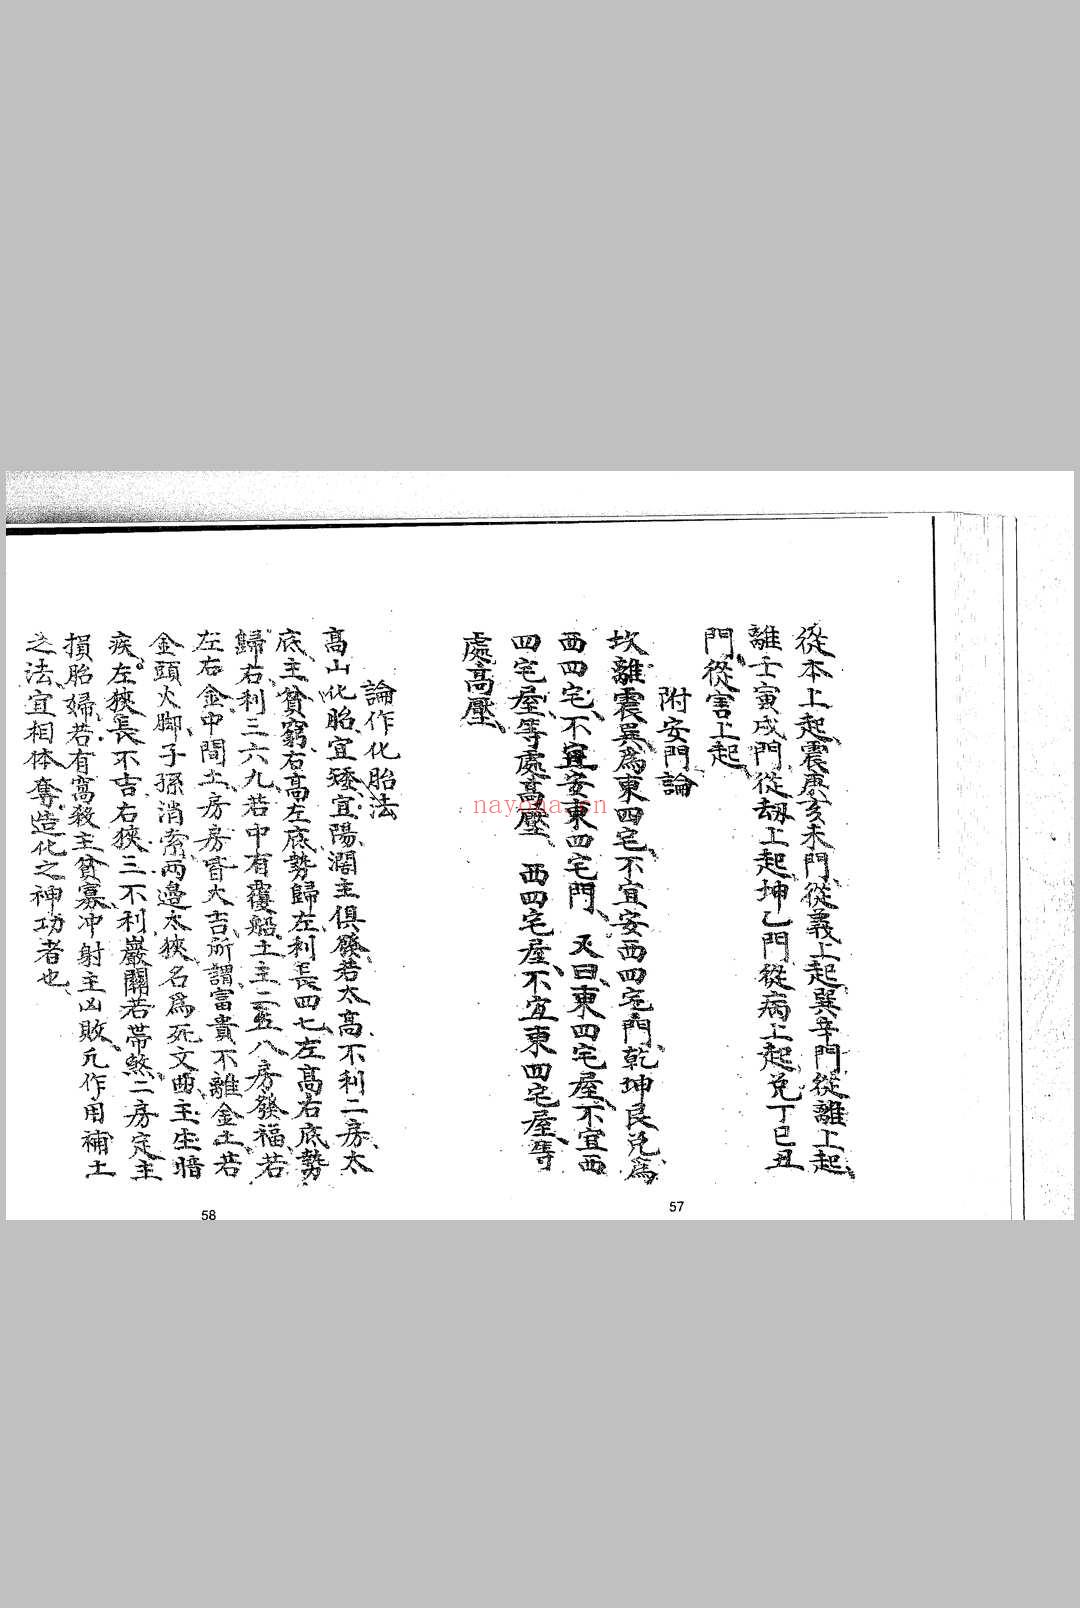 從本上起震庚亥未門從義上起巽辛門從離上起
離壬寅戌門從劫上起坤乙門從病上起兌丁巳丑
門從害上起
附安門論
坎離震巽為東四宅不宜安西四宅門乾坤艮兌為
西四宅不宜安東四宅門 又曰東四宅屋不宜西
四宅屋等處高壓 西四宅屋不宜東四宅屋等
處高壓
57
論作化胎法
高山化胎宜矮宜陽濶主俱發若太高不利二房太
底主貧窮右高左底勢歸左利長四七左高右底勢
歸右利三六九若中有覆船土主二五八房發福若
左右金中間土房房皆大吉所謂富貴不離金土若
金頭火脚子孫消索兩邊太狹名爲死文曲主生暗
疾左狹長不吉右狹三不利巖關若帶煞二房定主
損胎婦若有窩殺主貧寡冲射主凶敗凡作用補土
之法宜相体奪造化之神功者也
58
nayona.cn